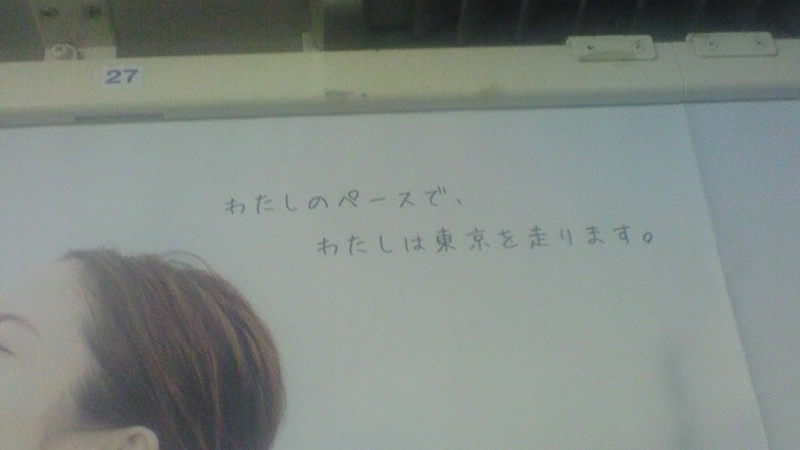 27
わたしのペースで、
わたしは東京を走ります。